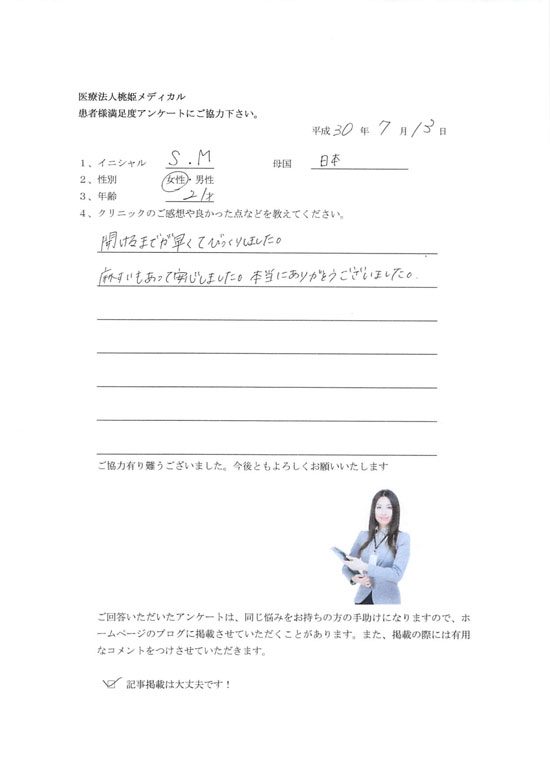 医療法人桃姫メディカル
患者様満足度アンケートにご協力下さい。
平成 30 年 7 月 13 日
1、イニシャル S.M 母国 日本
2、性別 女性・男性
3、年齢 21才
4、クリニックのご感想や良かった点などを教えてください。
開けるまでが早くてびっくりしました。
麻すいもあって安心しました。本当にありがとうございました。
ご協力有り難うございました。今後ともよろしくお願いいたします
ご回答いただいたアンケートは、同じ悩みをお持ちの方の手助けになりますので、ホ
ームページのブログに掲載させていただくことがあります。また、掲載の際には有用
なコメントをつけさせていただきます。
☑ 記事掲載は大丈夫です！